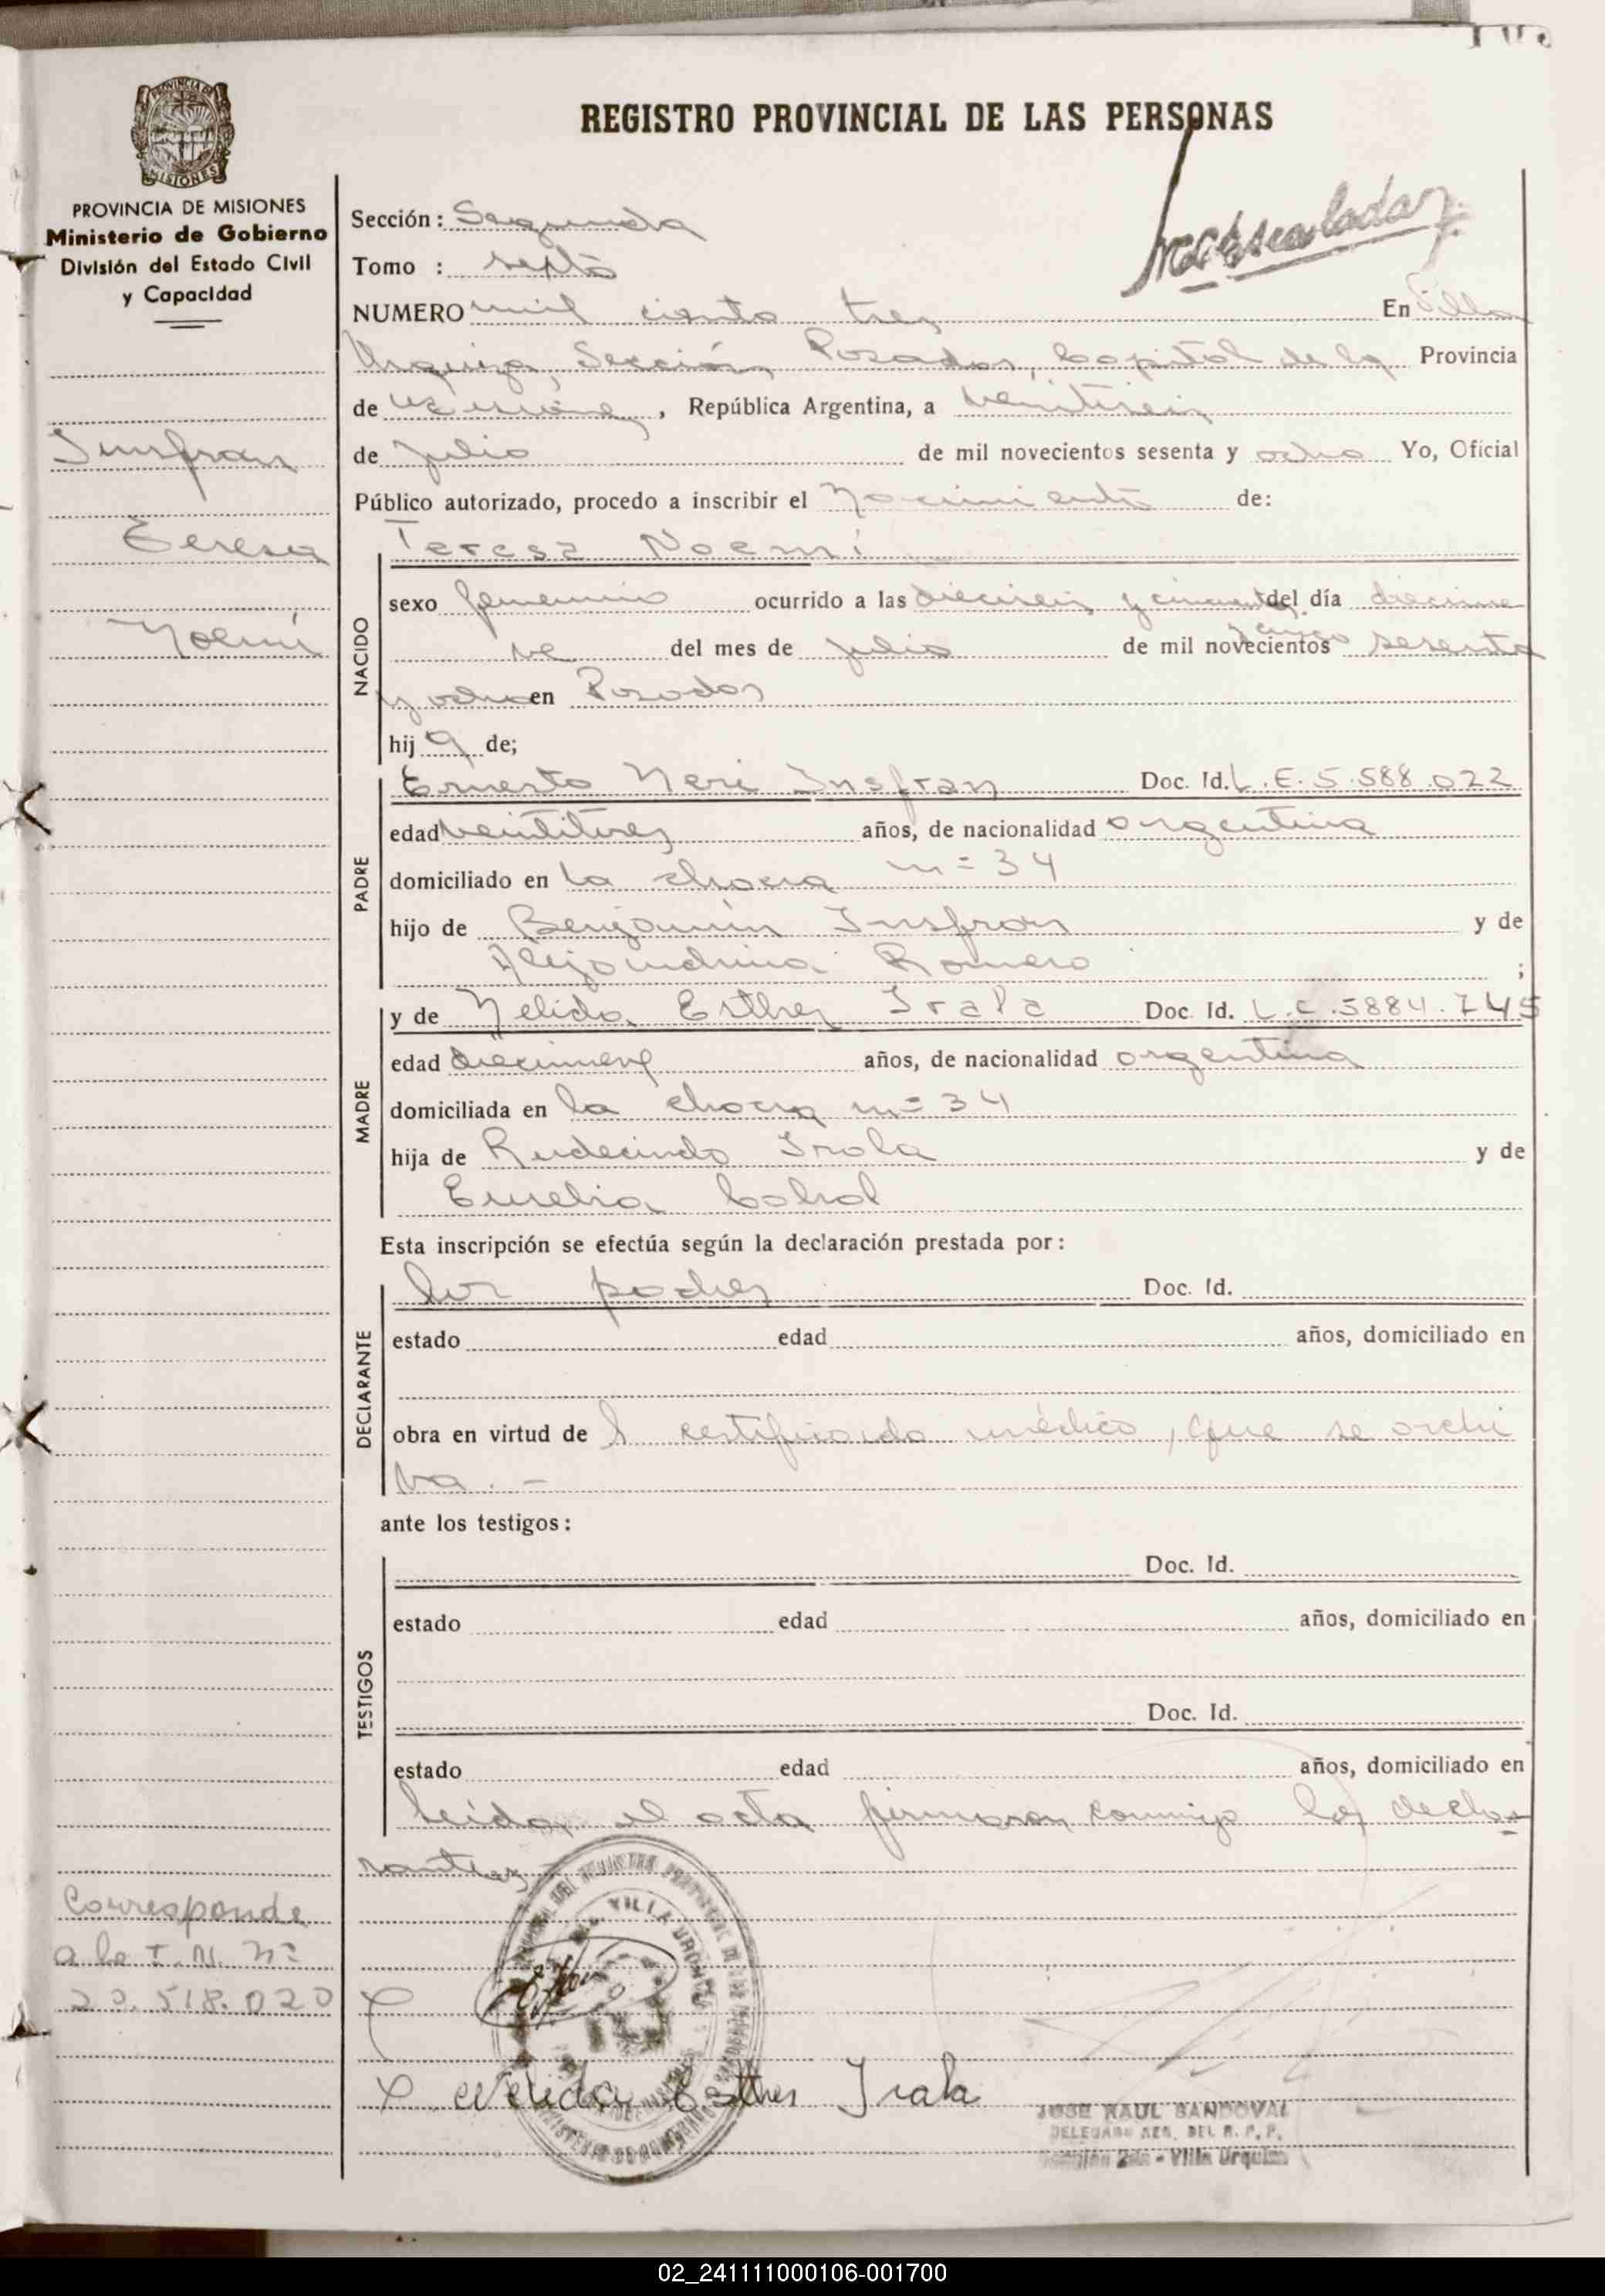 REGISTRO PROVINCIAL DE LAS PERSONAS
PROVINCIA DE MISIONES
Ministerio de Gobierno
División del Estado Civil
y Capacidad
Insfran
Teresa
Noemí
Sección: Segunda
Tomo : septo
NUMERO mil ciento tres En Villa
Urquiza, Sección Posadas, Capital de la Provincia
de Misiones, República Argentina, a veintiseis
de julio de mil novecientos sesenta y ocho Yo, Oficial
Público autorizado, procedo a inscribir el Nacimiento de:
NACIDO
Teresa Noemí
sexo femenino ocurrido a las dieciseis y cincuenta del día diecinue
y cinco
ve del mes de julio de mil novecientos sesenta
y ocho en Posadas
hija de;
PADRE
Ernesto Neri Insfran Doc. Id. L.E. 5.588.022
edad veintitres años, de nacionalidad argentina
domiciliado en la chacra n= 34
hijo de Benjamín Insfran y de
Alejandrina Romero ;
MADRE
y de Nelida Esther Irala Doc. Id. L.C. 5884.745
edad diecinueve años, de nacionalidad argentina
domiciliada en la chacra n= 34
hija de Rudecindo Irala y de
Eurelia Cabral
Esta inscripción se efectúa según la declaración prestada por:
DECLARANTE
los padres Doc. Id.
estado edad años, domiciliado en
obra en virtud de l certificado médico, que se archi
va. -
ante los testigos:
TESTIGOS
Doc. Id.
estado edad años, domiciliado en
Doc. Id.
estado edad años, domiciliado en
Leída el acta firmaron conmigo los decla
rantes
Corresponde
a la I. N. Nº
20.518.020
VILLA URQUIZA
Nelida Esther Irala
JOSE RAUL SANDOVAL
DELEGADO
DEL R. P. P.
Sección 2da - Villa Urquiza
02_241111000106-001700